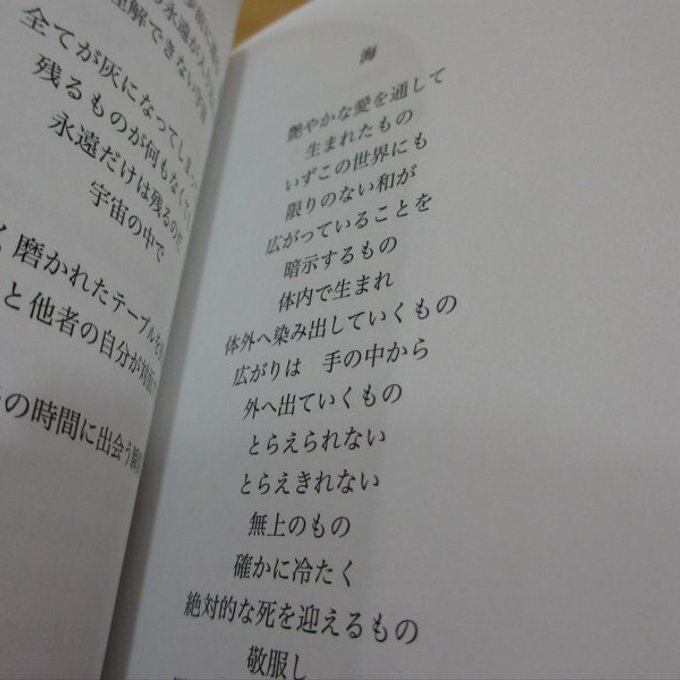 理解できない宇宙
全てが灰になってしまって
残るものが何もなくても
永遠だけは残るのだ
宇宙の中で
磨かれたテーブルを
と他者の自分が対面
の時間に出会う
海
艶やかな愛を通して
生まれたもの
いずこの世界にも
限りのない和が
広がっていることを
暗示するもの
体内で生まれ
体外へ染み出していくもの
広がりは　手の中から
外へ出ていくもの
とらえられない
とらえきれない
無上のもの
確かに冷たく
絶対的な死を迎えるもの
敬服し